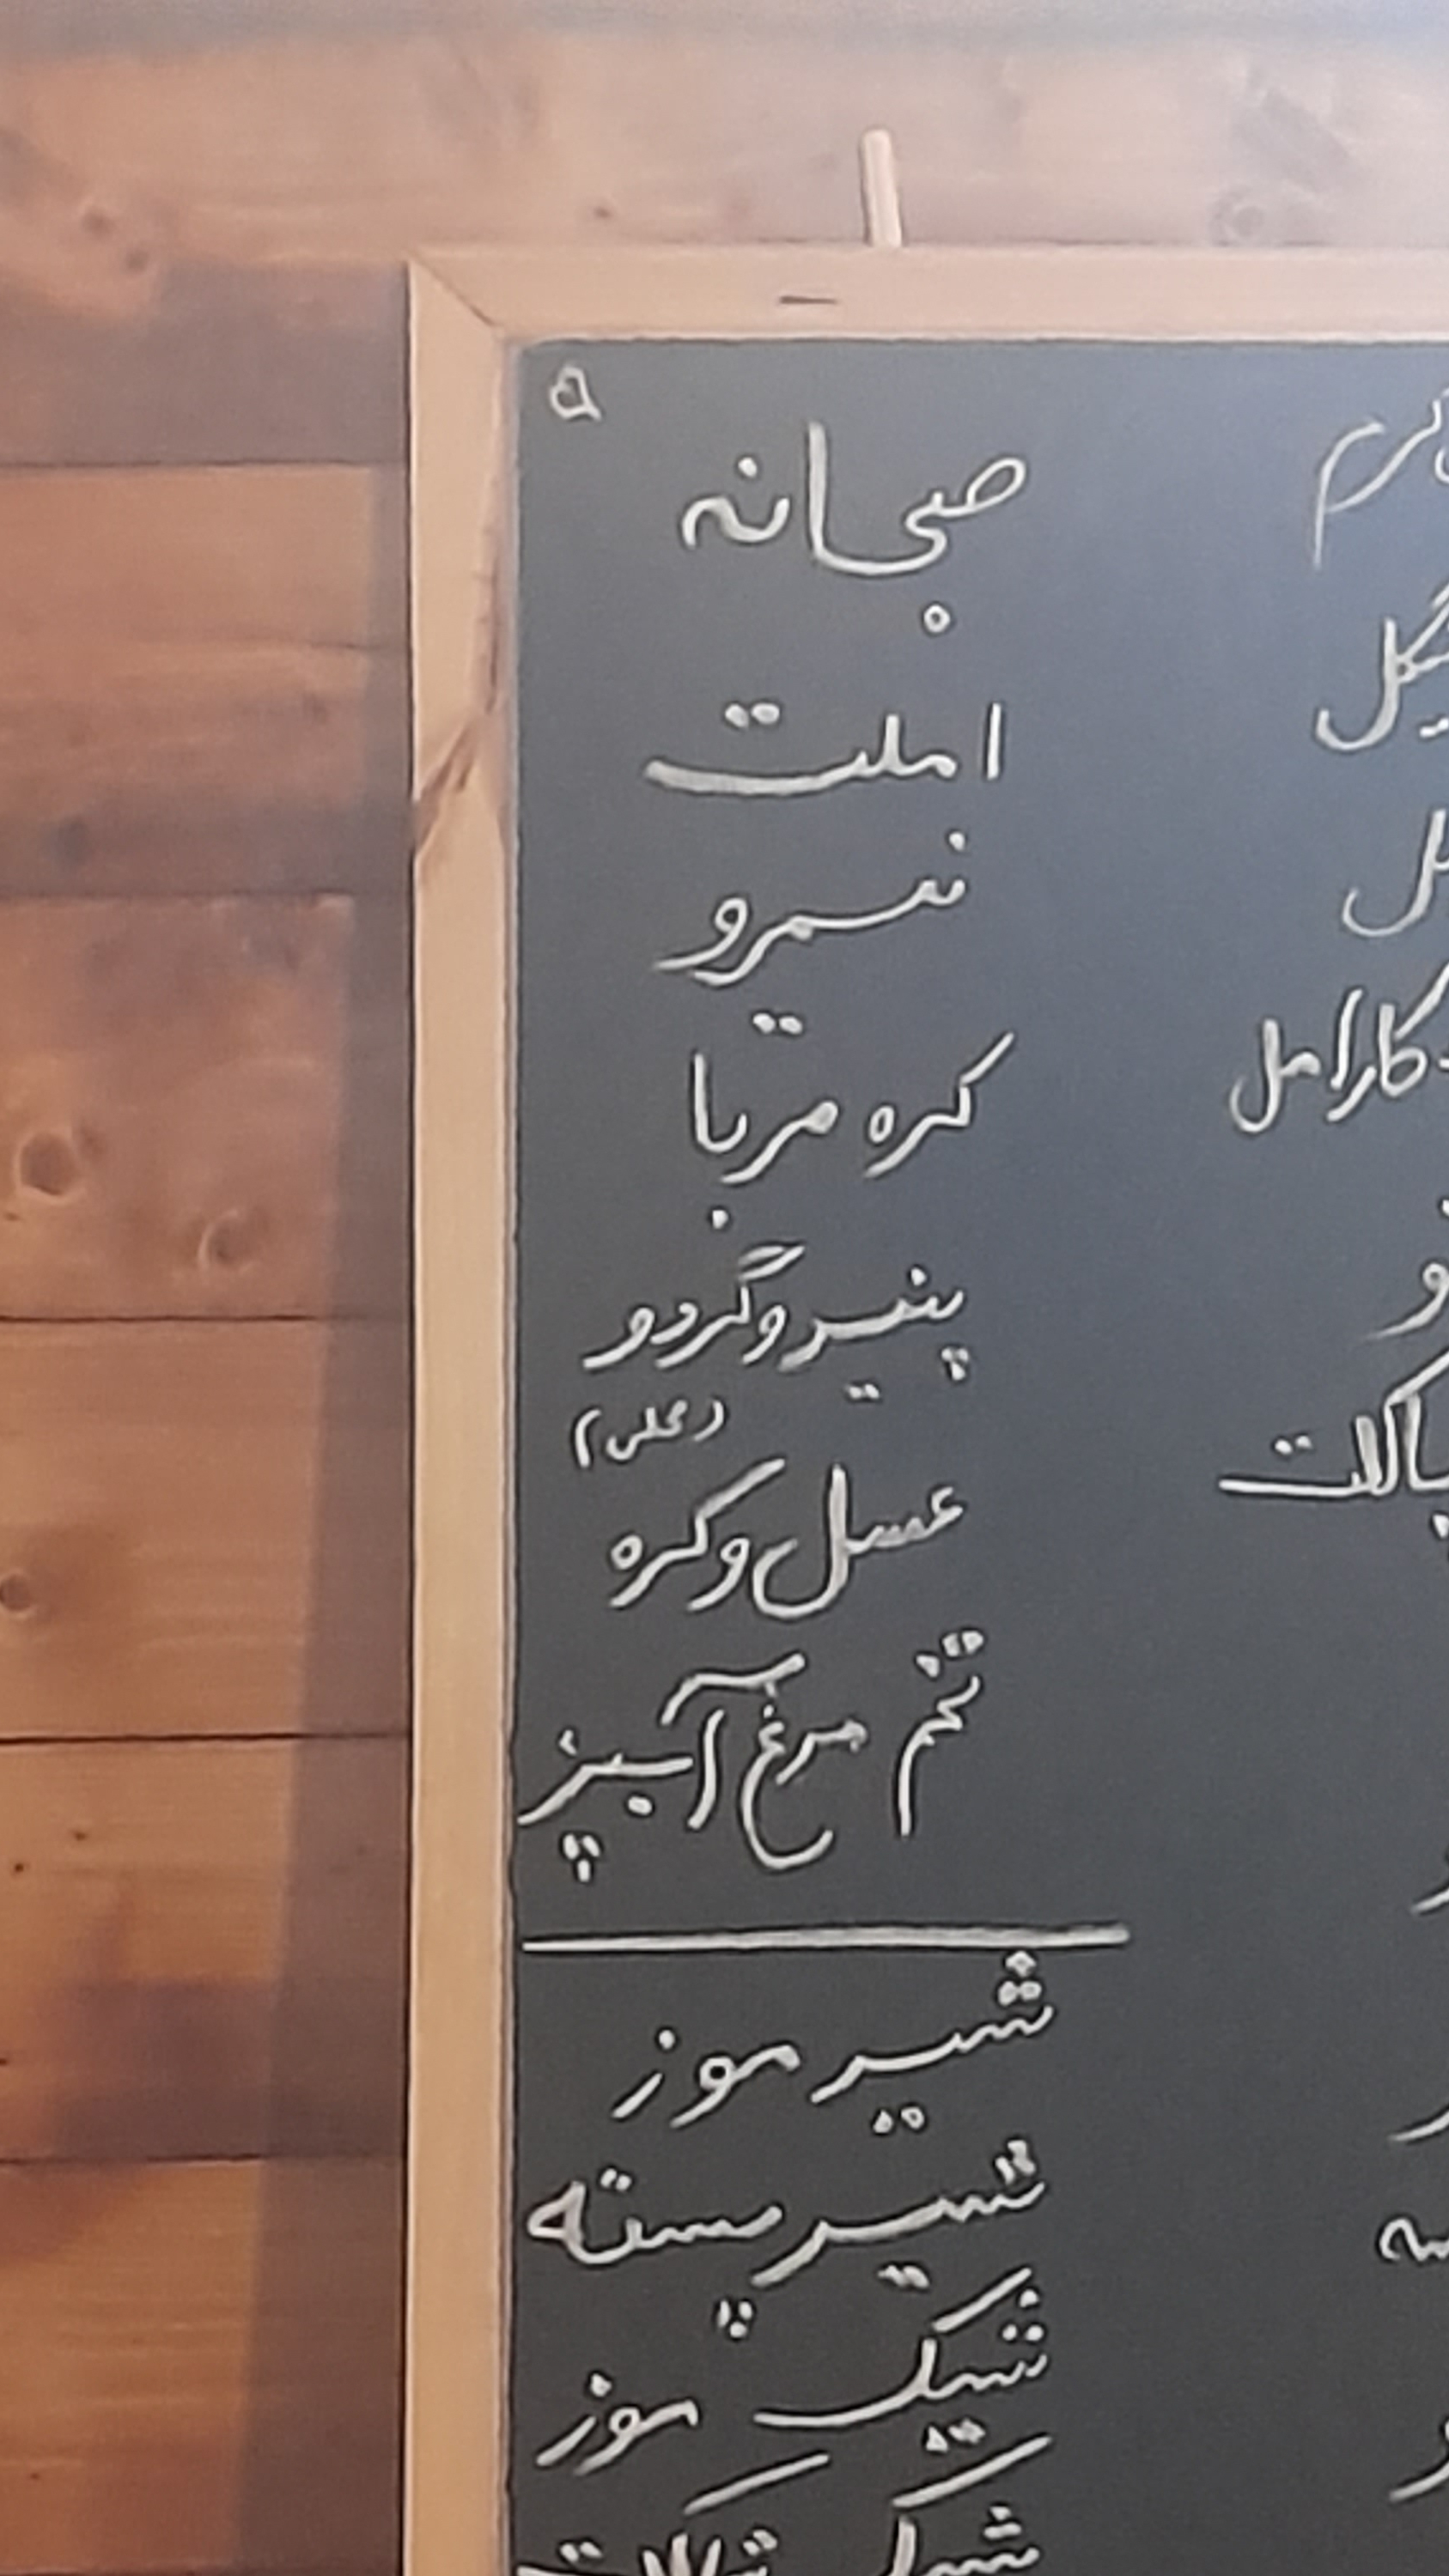 صبحانه
املت
نیمرو
کره مربا
پنیر و گردو
(محلی)
عسل و کره
تخم مرغ آبپز
شیر موز
شیر پسته
شیک موز
شیک شکلات
کارامل